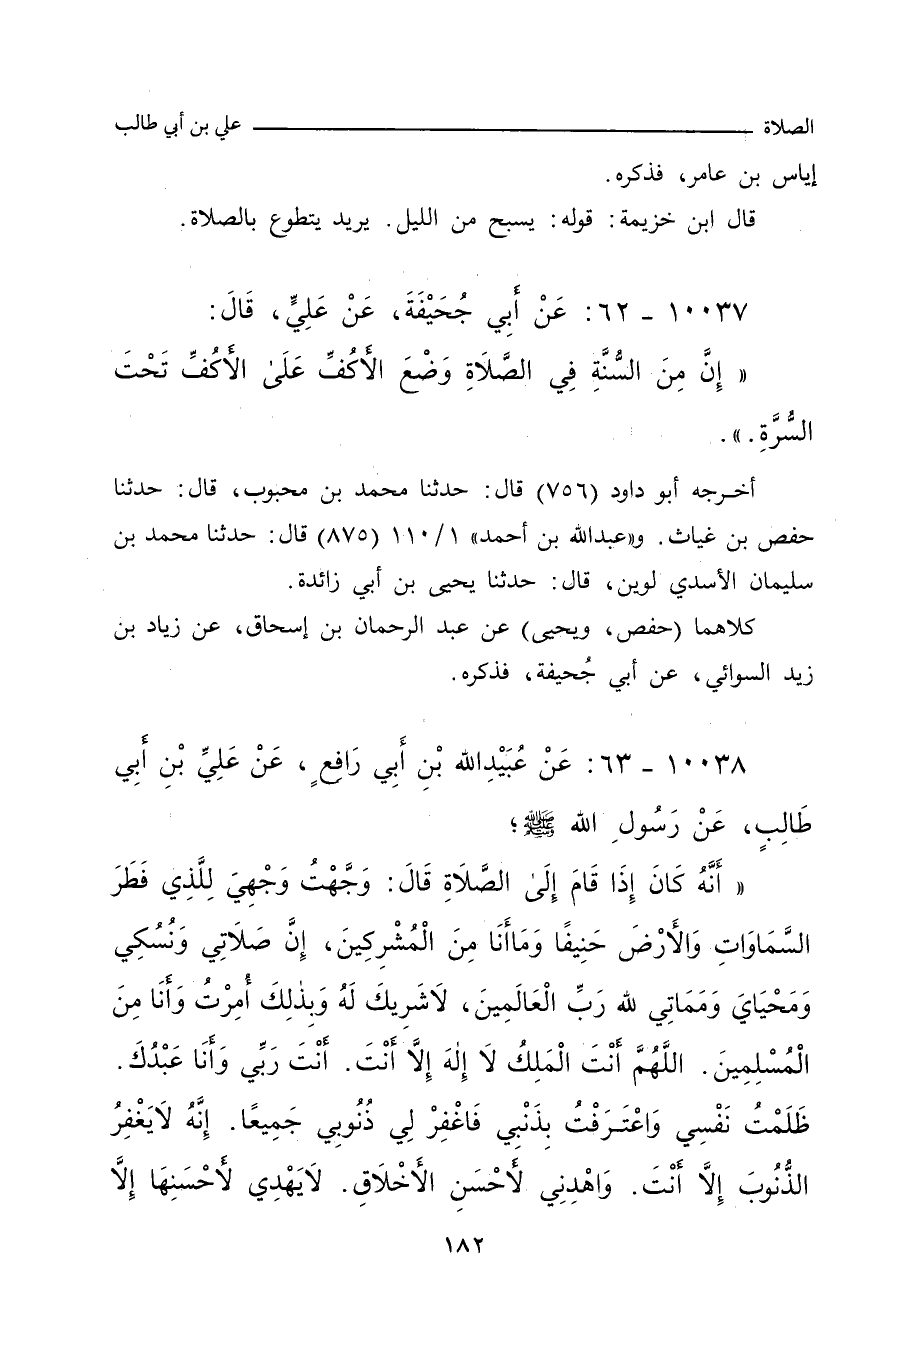 الصلاة ــــــــــــــــ علي بن أبي طالب
إياس بن عامر، فذكره.
قال ابن خزيمة: قوله: يسبح من الليل. يريد يتطوع بالصلاة.
١٠٠٣٧ - ٦٢: عَنْ أَبِي جُحَيْفَةَ، عَنْ عَلِيٍّ، قَالَ:
« إِنَّ مِنَ السُّنَّةِ فِي الصَّلَاةِ وَضْعَ الْأَكُفِّ عَلَىٰ الْأَكُفِّ تَحْتَ
السُّرَّةِ.».
أخرجه أبو داود (٧٥٦) قال: حدثنا محمد بن محبوب، قال: حدثنا
حفص بن غياث. و«عبدالله بن أحمد» ١/١١٠ (٨٧٥) قال: حدثنا محمد بن
سليمان الأسدي لوين، قال: حدثنا يحيى بن أبي زائدة.
كلاهما (حفص، ويحيى) عن عبد الرحمان بن إسحاق، عن زياد بن
زيد السوائي، عن أبي جُحيفة، فذكره.
١٠٠٣٨ - ٦٣: عَنْ عُبَيْدِالله بْنِ أَبِي رَافِعٍ، عَنْ عَلِيِّ بْنِ أَبِي
طَالِبٍ، عَنْ رَسُولِ الله ﷺ؛
« أَنَّهُ كَانَ إِذَا قَامَ إِلَىٰ الصَّلَاةِ قَالَ: وَجَّهْتُ وَجْهِيَ لِلَّذِي فَطَرَ
السَّمَاوَاتِ وَالْأَرْضَ حَنِيفًا وَمَاأَنَا مِنَ الْمُشْرِكِينَ، إِنَّ صَلَاتِي وَنُسُكِي
وَمَحْيَايَ وَمَمَاتِي لله رَبِّ الْعَالَمِينَ، لَاشَرِيكَ لَهُ وَبِذٰلِكَ أُمِرْتُ وَأَنَا مِنَ
الْمُسْلِمِينَ. اللَّهُمَّ أَنْتَ الْمَلِكُ لَا إِلٰهَ إِلَّا أَنْتَ. أَنْتَ رَبِّي وَأَنَا عَبْدُكَ.
ظَلَمْتُ نَفْسِي وَاعْتَرَفْتُ بِذَنْبِي فَاغْفِرْ لِي ذُنُوبِي جَمِيعًا. إِنَّهُ لَايَغْفِرُ
الذُّنُوبَ إِلَّا أَنْتَ. وَاهْدِنِي لَأَحْسَنِ الْأَخْلَاقِ. لَايَهْدِي لَأَحْسَنِهَا إِلَّا
١٨٢